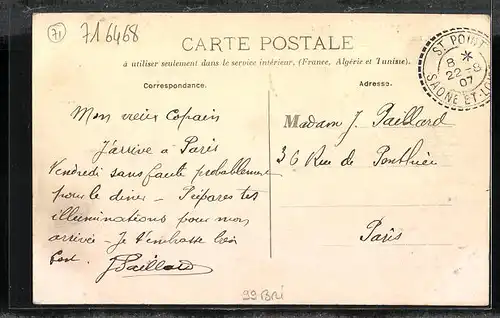 71
716468
CARTE POSTALE
à utiliser seulement dans le service intérieur, (France, Algérie et Tunisie).
Correspondance.
Adresse.
ST POINT
8 *
22 - 8
07
SAONE ET-LOI
Mon vieux Copain
J'arrive à Paris
Vendredi sans faute probablement
pour le diner - Prépares tes
illuminations pour mon
arrivée - Je t'embrasse bien
fort. J Paillard
Madam J. Paillard
36 Rue de Ponthieu
Paris
99 BRI